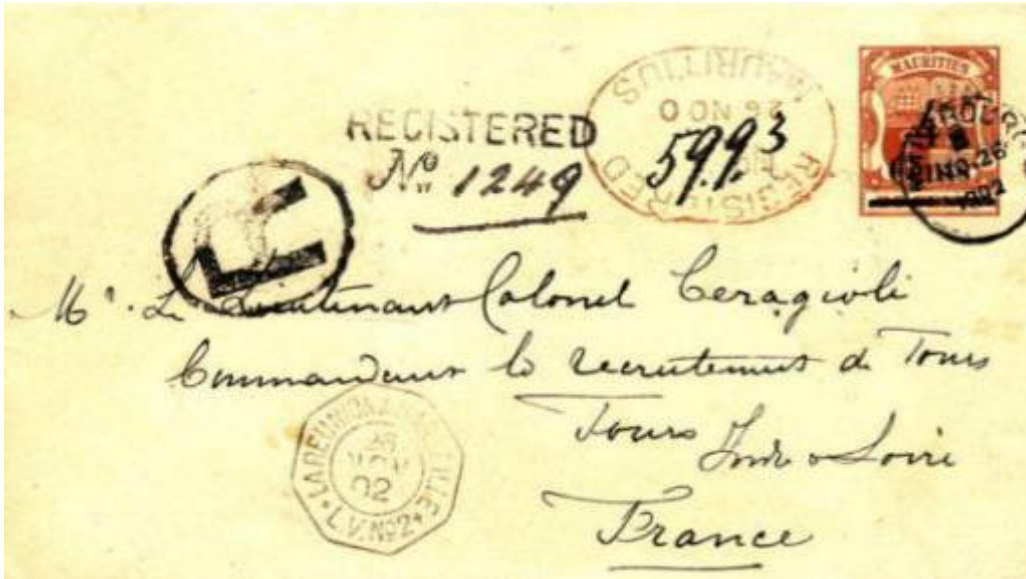 MAURITIUS
REGISTERED
MAURITIUS
26 NO 0
REGISTERED
599.3
No 1249
1902
R
Mr. Le Lieutenant Colonel Ceragioli
Commandant le recrutement de Tours
Tours
Indre & Loire
France
LA REUNION A MARSEILLE
NOV
02
L.V. No 2